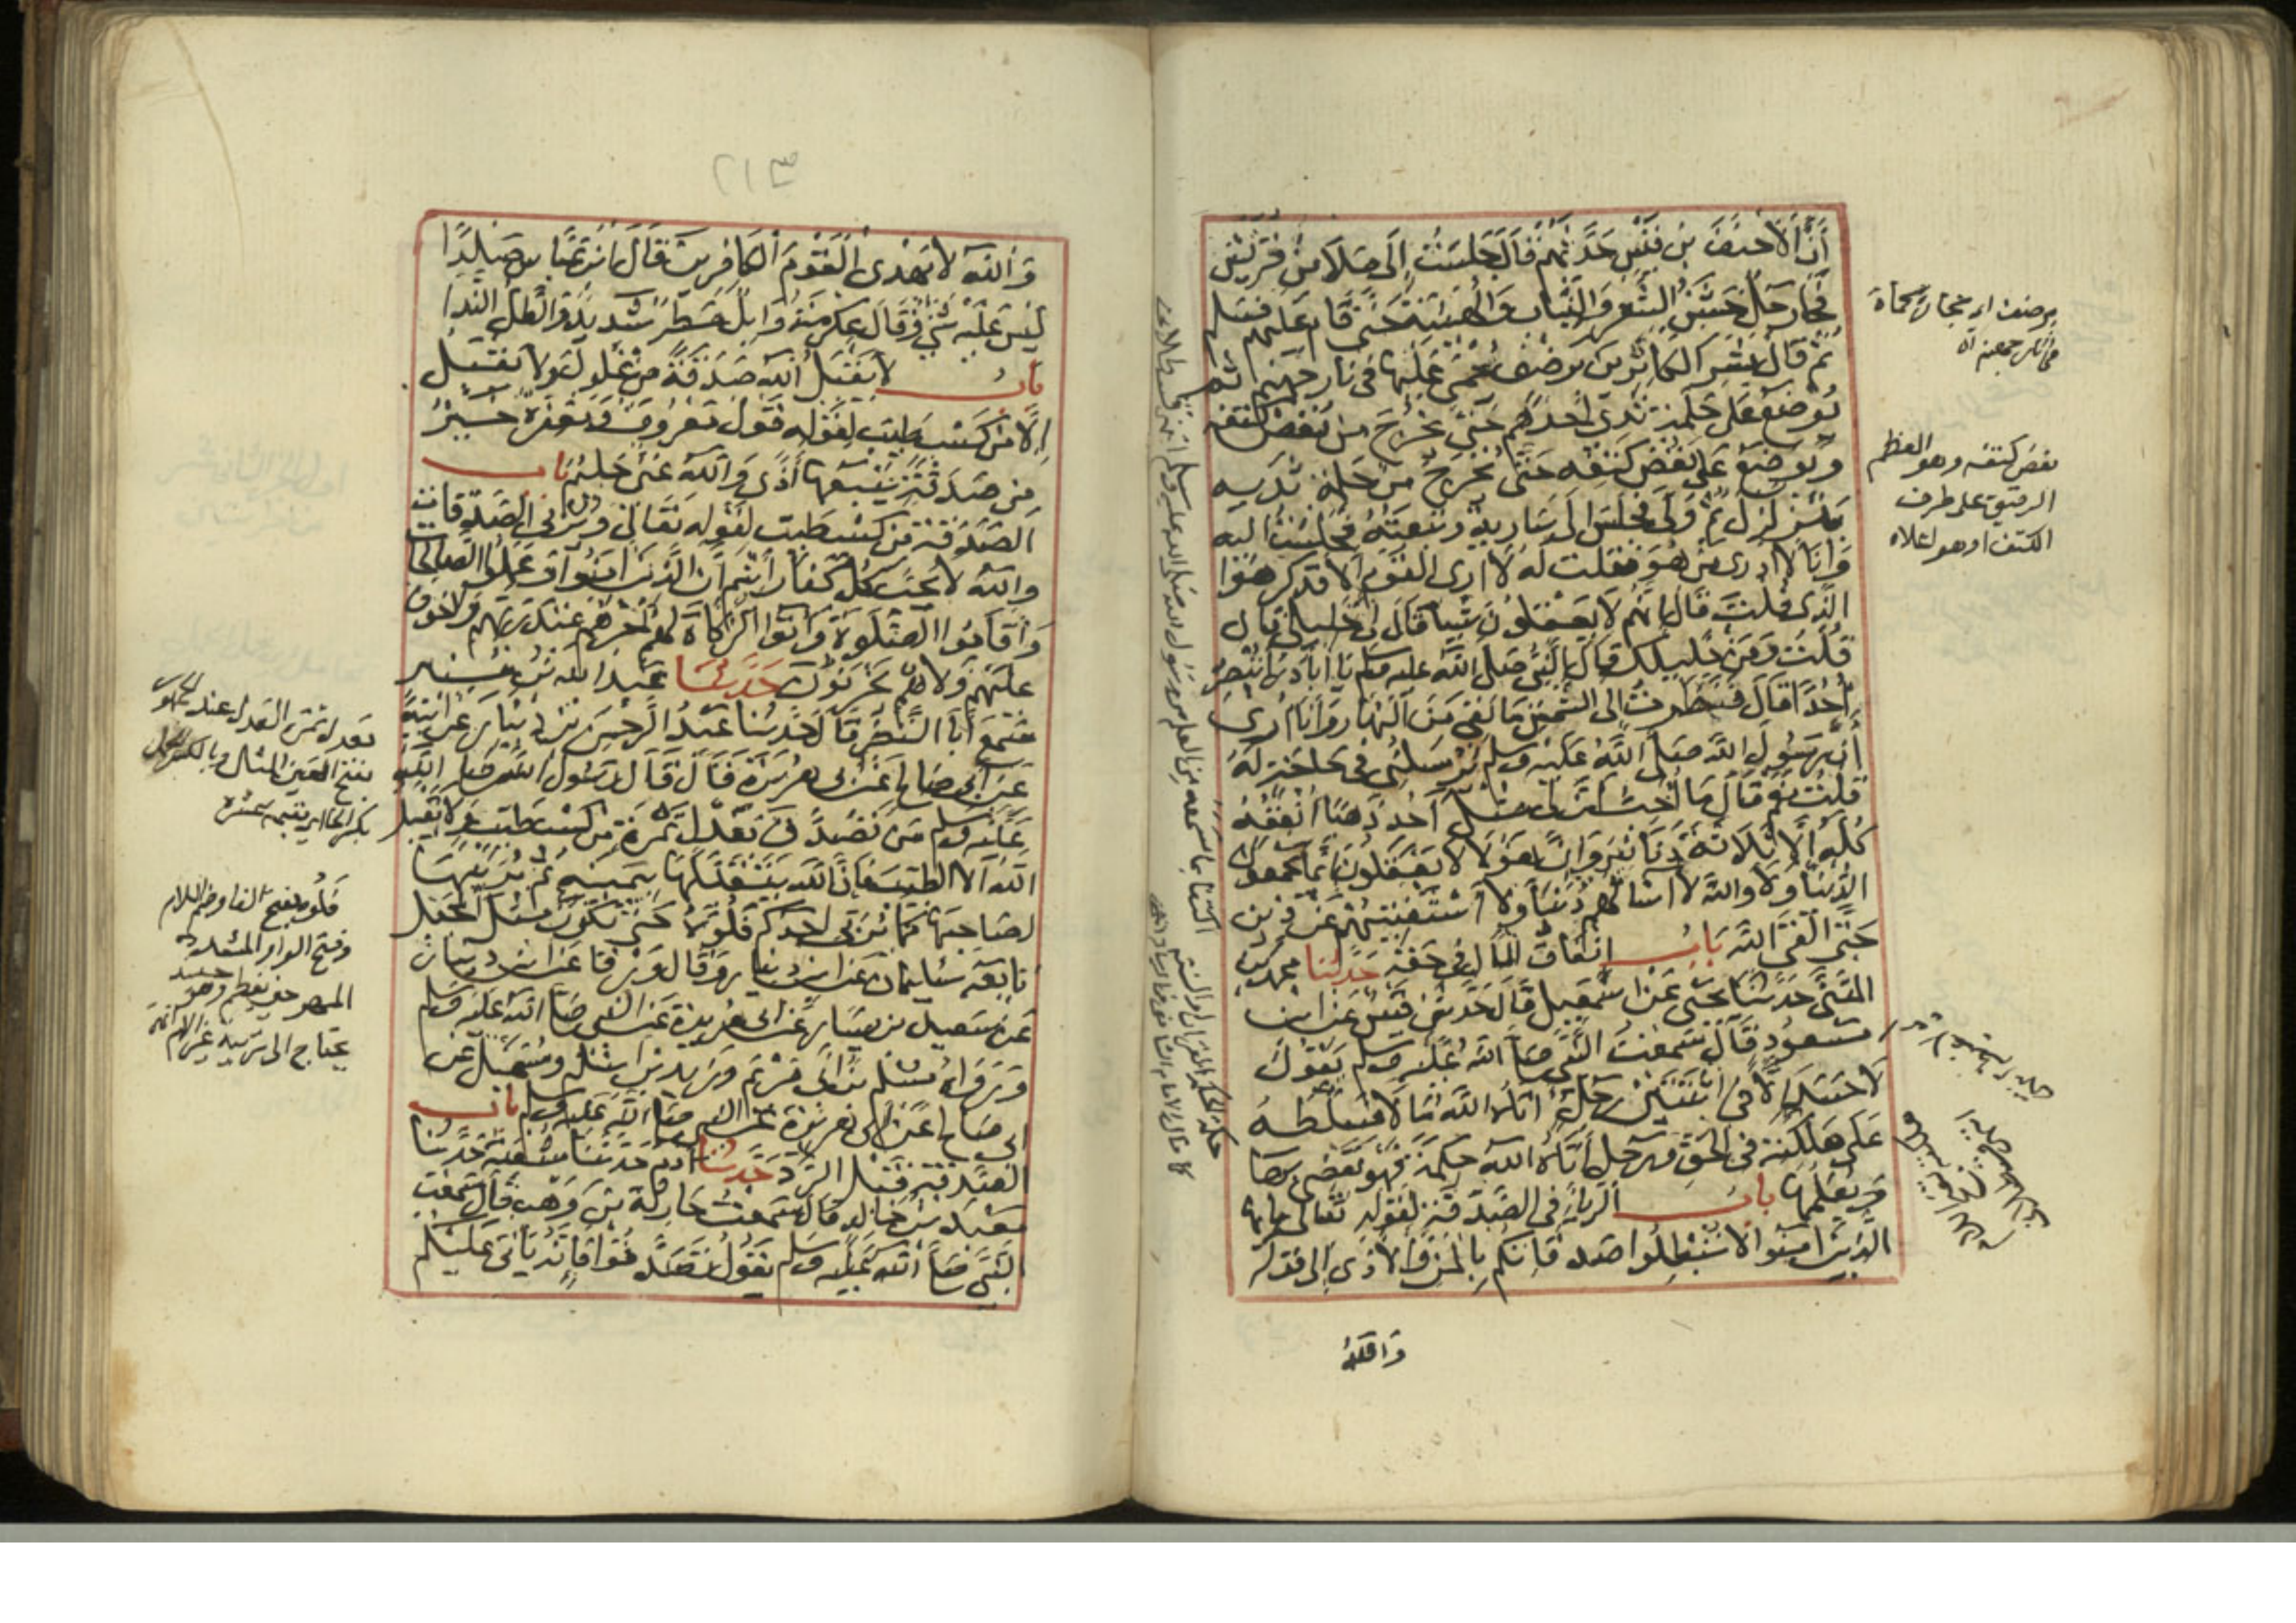 أَنَّ الْأَحْنَفَ بْنَ قَيْسٍ حَدَّثَهُمْ قَالَ جَلَسْتُ إِلَى مَلَإٍ مِنْ قُرَيْشٍ
فَجَاءَ رَجُلٌ خَشِنُ الشَّعَرِ وَالثِّيَابِ وَالْهَيْئَةِ حَتَّى قَامَ عَلَيْهِمْ فَسَلَّمَ
ثُمَّ قَالَ بَشِّرِ الْكَانِزِينَ بِرَضْفٍ يُحْمَى عَلَيْهَا فِي نَارِ جَهَنَّمَ ثُمَّ
يُوضَعُ عَلَى حَلَمَةِ ثَدْيِ أَحَدِهِمْ حَتَّى يَخْرُجَ مِنْ نُغْضِ كَتِفِهِ
وَيُوضَعُ عَلَى نُغْضِ كَتِفِهِ حَتَّى يَخْرُجَ مِنْ حَلَمَةِ ثَدْيِهِ
يَتَزَلْزَلُ ثُمَّ وَلَّى فَجَلَسَ إِلَى سَارِيَةٍ وَتَبِعْتُهُ فَجَلَسْتُ إِلَيْهِ
وَأَنَا لَا أَدْرِي مَنْ هُوَ فَقُلْتُ لَهُ لَا أَرَى الْقَوْمَ إِلَّا قَدْ كَرِهُوا
الَّذِي قُلْتَ قَالَ إِنَّهُمْ لَا يَعْقِلُونَ شَيْئًا قَالَ لِي خَلِيلِي قَالَ
قُلْتُ وَمَنْ خَلِيلُكَ قَالَ النَّبِيُّ صَلَّى اللَّهُ عَلَيْهِ وَسَلَّمَ يَا أَبَا ذَرٍّ أَتُبْصِرُ
أُحُدًا قَالَ فَنَظَرْتُ إِلَى الشَّمْسِ مَا بَقِيَ مِنَ النَّهَارِ وَأَنَا أُرَى
أَنَّ رَسُولَ اللَّهِ صَلَّى اللَّهُ عَلَيْهِ وَسَلَّمَ يُرْسِلُنِي فِي حَاجَةٍ لَهُ
قُلْتُ نَعَمْ قَالَ مَا أُحِبُّ أَنَّ لِي مِثْلَ أُحُدٍ ذَهَبًا أُنْفِقُهُ
كُلَّهُ إِلَّا ثَلَاثَةَ دَنَانِيرَ وَإِنَّ هَؤُلَاءِ لَا يَعْقِلُونَ إِنَّمَا يَجْمَعُونَ
الدُّنْيَا وَلَا وَاللَّهِ لَا أَسْأَلُهُمْ دُنْيَا وَلَا أَسْتَفْتِيهِمْ عَنْ دِينٍ
حَتَّى أَلْقَى اللَّهَ بَابُ إِنْفَاقِ الْمَالِ فِي حَقِّهِ حَدَّثَنَا مُحَمَّدُ بْنُ
الْمُثَنَّى حَدَّثَنَا يَحْيَى عَنْ إِسْمَعِيلَ قَالَ حَدَّثَنِي قَيْسٌ عَنِ ابْنِ
مَسْعُودٍ قَالَ سَمِعْتُ النَّبِيَّ صَلَّى اللَّهُ عَلَيْهِ وَسَلَّمَ يَقُولُ
لَا حَسَدَ إِلَّا فِي اثْنَتَيْنِ رَجُلٌ آتَاهُ اللَّهُ مَالًا فَسَلَّطَهُ
عَلَى هَلَكَتِهِ فِي الْحَقِّ وَرَجُلٌ آتَاهُ اللَّهُ حِكْمَةً فَهُوَ يَقْضِي بِهَا
وَيُعَلِّمُهَا بَابُ الرِّيَاءِ فِي الصَّدَقَةِ لِقَوْلِهِ تَعَالَى يَا أَيُّهَا
الَّذِينَ آمَنُوا لَا تُبْطِلُوا صَدَقَاتِكُمْ بِالْمَنِّ وَالْأَذَى إِلَى قَوْلِهِ
وَاللَّهُ
نغض كتفه وهو العظم
الرقيق على طرف
الكتف او هو اعلاه
٢١٣
وَاللَّهُ لَا يَهْدِي الْقَوْمَ الْكَافِرِينَ قَالَ ابْنُ عَبَّاسٍ صَلْدًا
لَيْسَ عَلَيْهِ شَيْءٌ وَقَالَ عِكْرِمَةُ وَابِلٌ مَطَرٌ شَدِيدٌ وَالطَّلُّ النَّدَا
بَابُ لَا يَقْبَلُ اللَّهُ صَدَقَةً مِنْ غُلُولٍ وَلَا يَقْبَلُ
إِلَّا مِنْ كَسْبٍ طَيِّبٍ لِقَوْلِهِ قَوْلٌ مَعْرُوفٌ وَمَغْفِرَةٌ خَيْرٌ
مِنْ صَدَقَةٍ يَتْبَعُهَا أَذًى وَاللَّهُ غَنِيٌّ حَلِيمٌ بَابُ
الصَّدَقَةِ مِنْ كَسْبٍ طَيِّبٍ لِقَوْلِهِ تَعَالَى وَيُرْبِي الصَّدَقَاتِ
وَاللَّهُ لَا يُحِبُّ كُلَّ كَفَّارٍ أَثِيمٍ إِنَّ الَّذِينَ آمَنُوا وَعَمِلُوا الصَّالِحَاتِ
وَأَقَامُوا الصَّلَوةَ وَآتَوُا الزَّكَاةَ لَهُمْ أَجْرُهُمْ عِنْدَ رَبِّهِمْ وَلَا خَوْفٌ
عَلَيْهِمْ وَلَا هُمْ يَحْزَنُونَ حَدَّثَنَا عَبْدُ اللَّهِ بْنُ مُنِيرٍ
سَمِعَ أَبَا النَّضْرِ قَالَ حَدَّثَنَا عَبْدُ الرَّحْمَنِ بْنُ دِينَارٍ عَنْ أَبِيهِ
عَنْ أَبِي صَالِحٍ عَنْ أَبِي هُرَيْرَةَ قَالَ قَالَ رَسُولُ اللَّهِ صَلَّى اللَّهُ
عَلَيْهِ وَسَلَّمَ مَنْ تَصَدَّقَ بِعَدْلِ تَمْرَةٍ مِنْ كَسْبٍ طَيِّبٍ وَلَا يَقْبَلُ
اللَّهُ إِلَّا الطَّيِّبَ فَإِنَّ اللَّهَ يَتَقَبَّلُهَا بِيَمِينِهِ ثُمَّ يُرَبِّيهَا
لِصَاحِبِهَا كَمَا يُرَبِّي أَحَدُكُمْ فَلُوَّهُ حَتَّى تَكُونَ مِثْلَ الْجَبَلِ
تَابَعَهُ سُلَيْمَانُ عَنِ ابْنِ دِينَارٍ وَقَالَ وَرْقَاءُ عَنِ ابْنِ دِينَارٍ
عَنْ سَعِيدِ بْنِ يَسَارٍ عَنْ أَبِي هُرَيْرَةَ عَنِ النَّبِيِّ صَلَّى اللَّهُ عَلَيْهِ وَسَلَّمَ
وَرَوَاهُ مُسْلِمُ بْنُ أَبِي مَرْيَمَ وَزَيْدُ بْنُ أَسْلَمَ وَسُهَيْلٌ عَنْ
أَبِي صَالِحٍ عَنْ أَبِي هُرَيْرَةَ عَنِ النَّبِيِّ صَلَّى اللَّهُ عَلَيْهِ وَسَلَّمَ بَابُ
الصَّدَقَةِ قَبْلَ الرَّدِّ حَدَّثَنَا آدَمُ حَدَّثَنَا شُعْبَةُ حَدَّثَنَا
مَعْبَدُ بْنُ خَالِدٍ قَالَ سَمِعْتُ حَارِثَةَ بْنَ وَهْبٍ قَالَ سَمِعْتُ
النَّبِيَّ صَلَّى اللَّهُ عَلَيْهِ وَسَلَّمَ يَقُولُ تَصَدَّقُوا فَإِنَّهُ يَأْتِي عَلَيْكُمْ
بفتح العين المثل وبالكسر
فلوه بفتح الفاء وضم اللام
وفتح الواو المشددة
المهر حين يفطم وهو حينئذ
يحتاج الى تربية